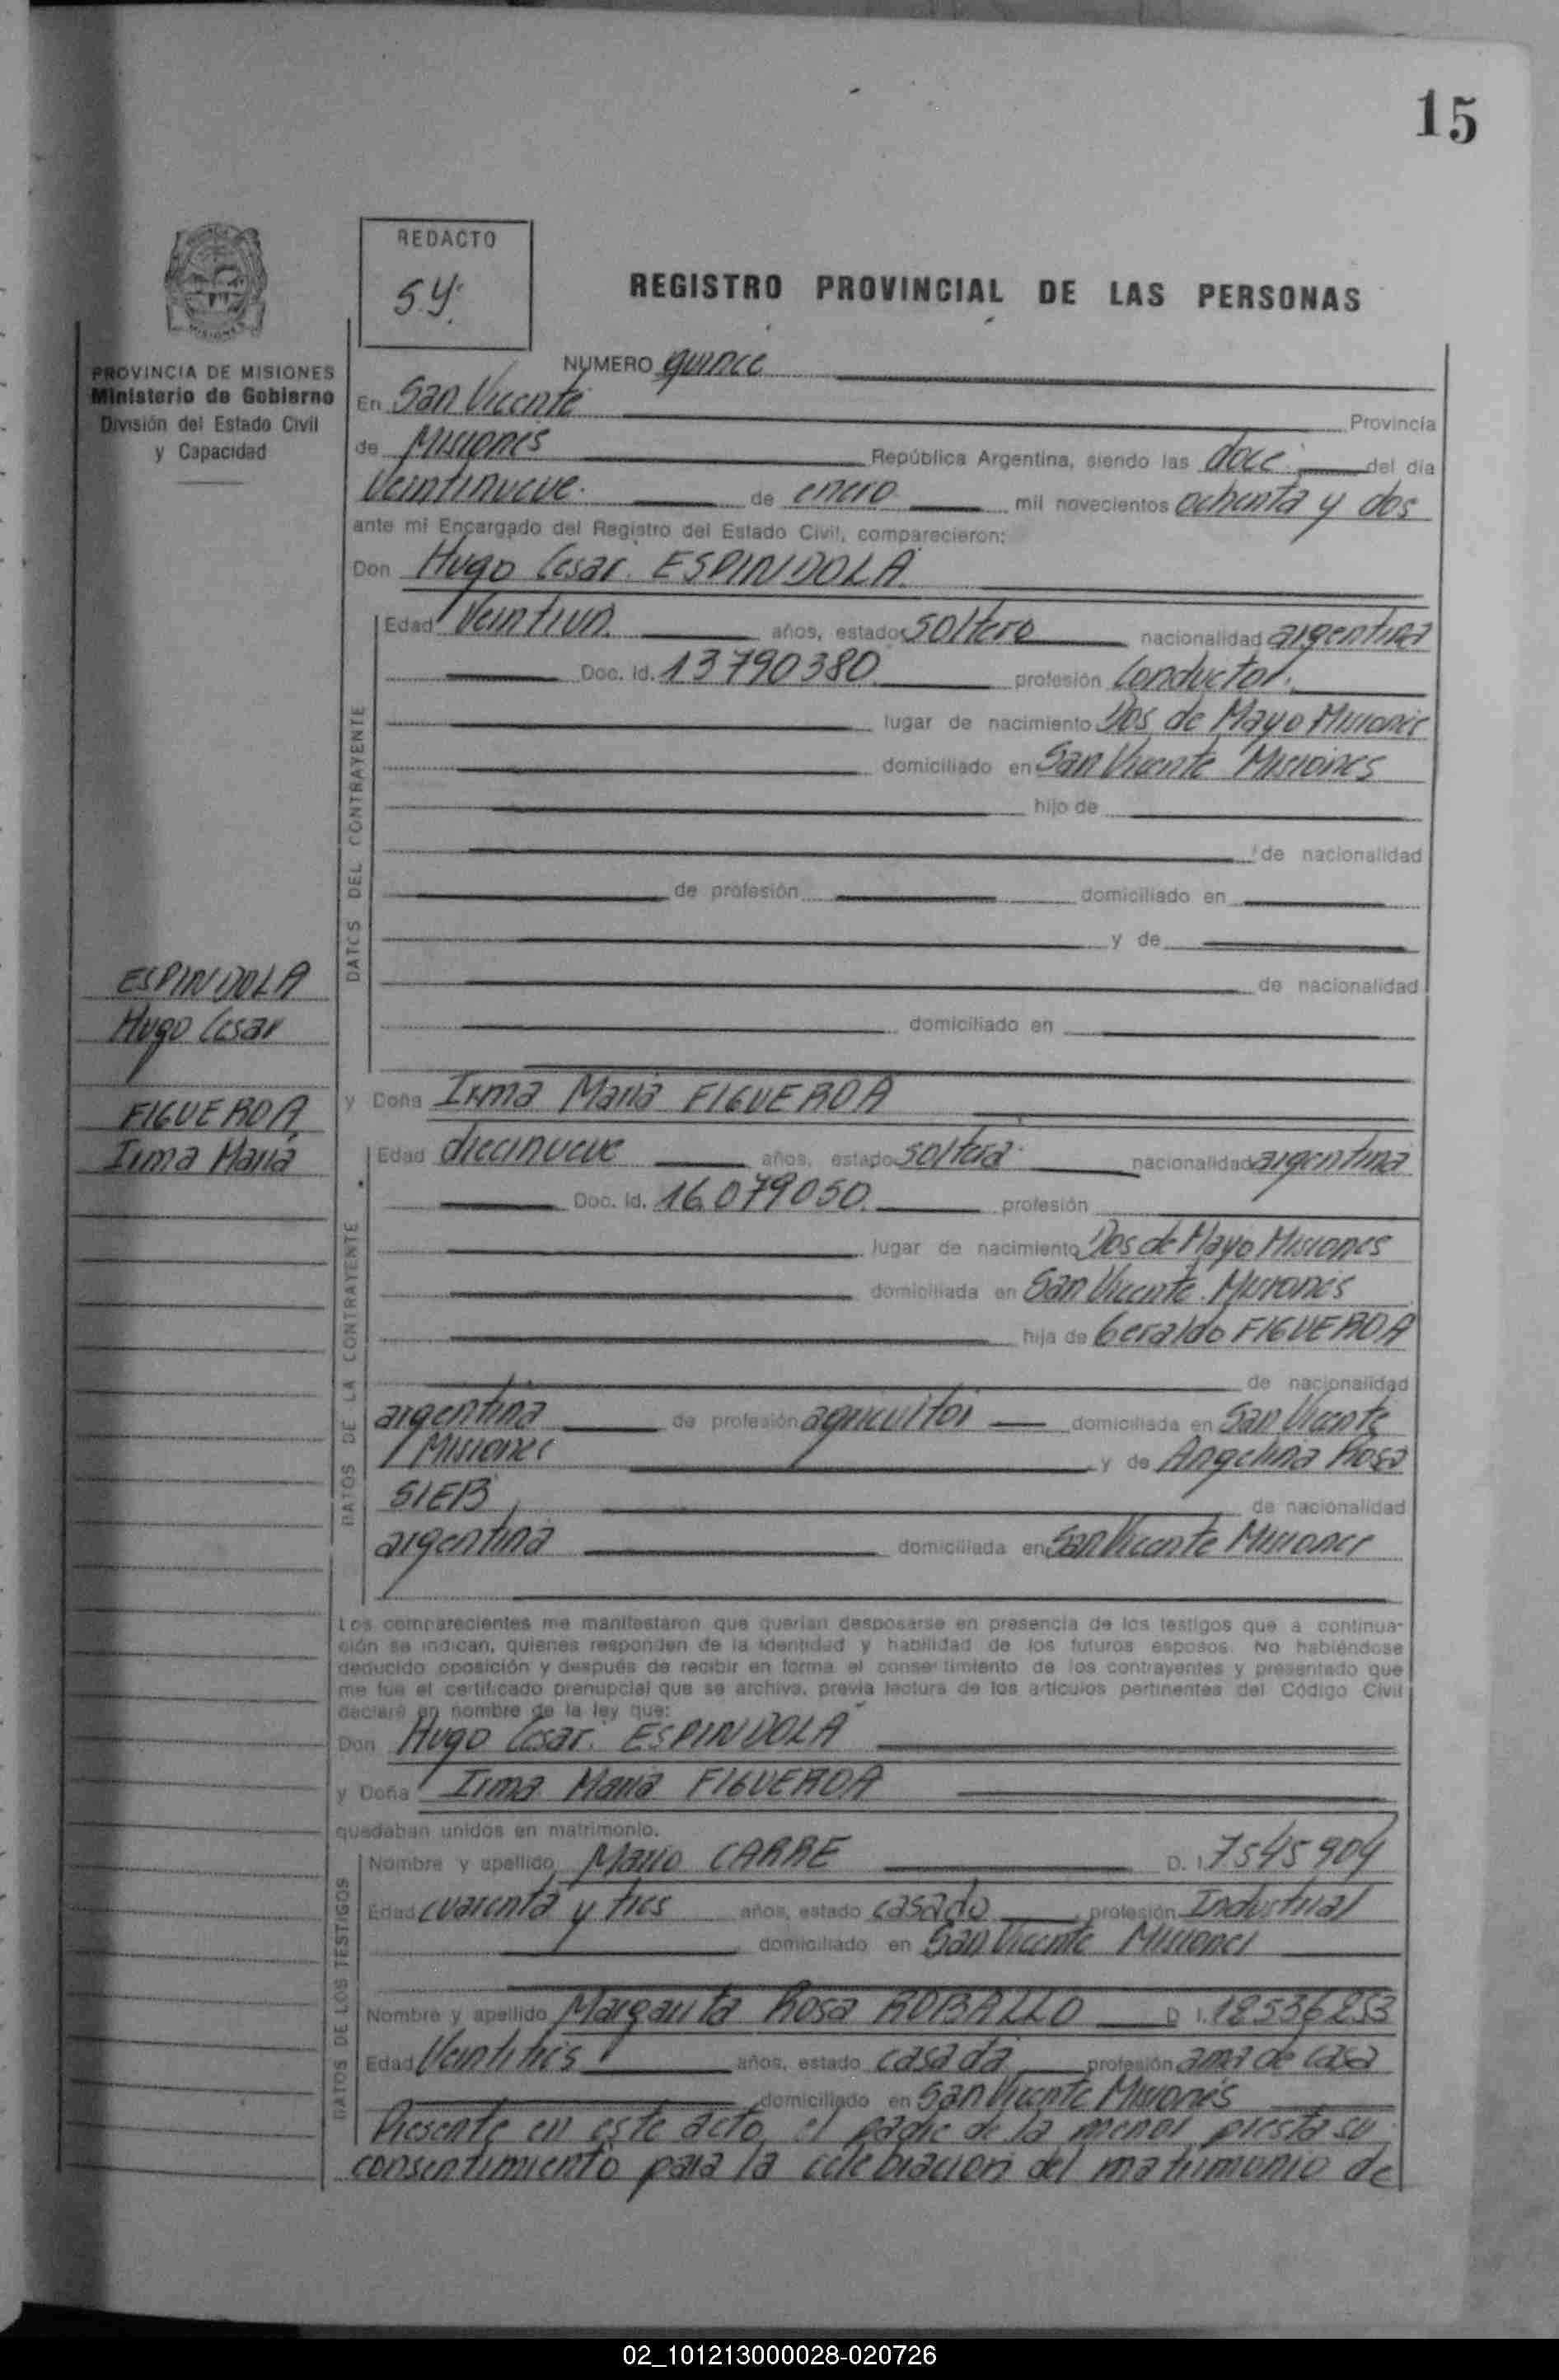 15
REDACTO
S.Y.
REGISTRO PROVINCIAL DE LAS PERSONAS
PROVINCIA DE MISIONES
Ministerio de Gobierno
División del Estado Civil
y Capacidad
NUMERO quince
En San Vicente Provincia
de Misiones República Argentina, siendo las doce del día
veintinueve de enero mil novecientos ochenta y dos
ante mi Encargado del Registro del Estado Civil, comparecieron:
Don Hugo Cesar ESPINDOLA
Edad Veintiun años, estado soltero nacionalidad argentina
Doc. Id. 13790380 profesión Conductor
lugar de nacimiento Dos de Mayo Misiones
domiciliado en San Vicente Misiones
hijo de
de nacionalidad
de profesión domiciliado en
y de
de nacionalidad
domiciliado en
DATOS DEL CONTRAYENTE
ESPINDOLA
Hugo Cesar
FIGUEROA
Irma Maria
y Doña Irma Maria FIGUEROA
Edad diecinueve años, estado soltera nacionalidad argentina
Doc. Id. 16.079050. profesión
lugar de nacimiento Dos de Mayo Misiones
domiciliada en San Vicente Misiones
hija de Geraldo FIGUEROA
de nacionalidad
argentina de profesión agricultor domiciliada en San Vicente
Misiones y de Angelina Rosa
SIEB de nacionalidad
argentina domiciliada en San Vicente Misiones
DATOS DE LA CONTRAYENTE
Los comparecientes me manifestaron que querían desposarse en presencia de los testigos que a continua-
ción se indican, quienes responden de la identidad y habilidad de los futuros esposos. No habiéndose
deducido oposición y después de recibir en forma el consentimiento de los contrayentes y presentado que
me fue el certificado prenupcial que se archiva, previa lectura de los artículos pertinentes del Código Civil
declaré en nombre de la ley que:
Don Hugo Cesar ESPINDOLA
y Doña Irma Maria FIGUEROA
quedaban unidos en matrimonio.
Nombre y apellido Mario CARRE D. I. 7545904
Edad cuarenta y tres años, estado casado profesión Industrial
domiciliado en San Vicente Misiones
Nombre y apellido Margarita Rosa ROBALLO D. I. 12536253
Edad Veintitres años, estado casada profesión ama de casa
domiciliado en San Vicente Misiones
DATOS DE LOS TESTIGOS
Presente en este acto, el padre de la menor presta su
consentimiento para la celebracion del matrimonio de
02_101213000028-020726